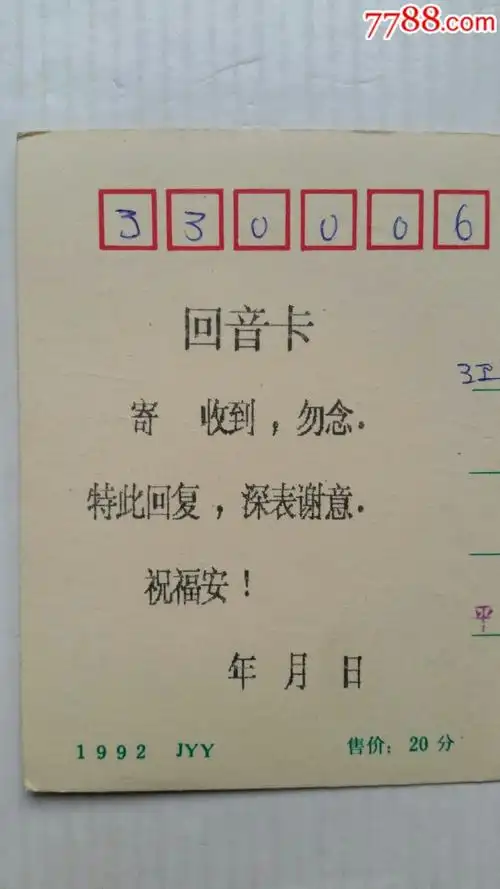 7788.com
330006
回音卡
寄 收到，勿念.
特此回复，深表谢意.
祝福安！
年 月 日
1992 JYY 售价：20分